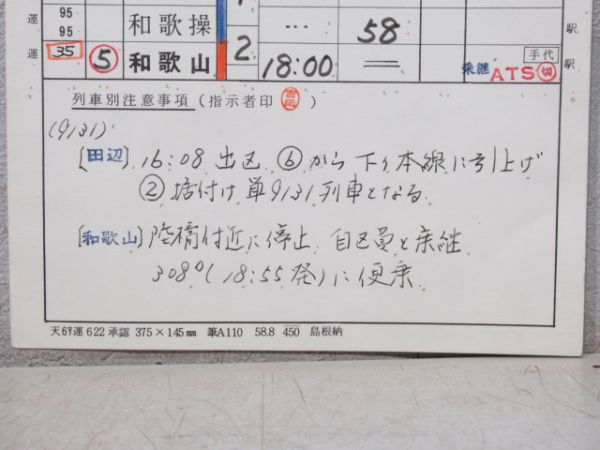 95
95
35
運
運
⑤
和歌操
和歌山
2
…
58
18:00
駅
手代
乗継
駅
ATS㊞切
列車別注意事項（指示者印 ）
(9131)
[田辺] 16:08 出区 ⑥から下り本線に引上げ
②据付け 単9131列車となる
[和歌山] 陸橋付近に停止 自区員と乗継
308D(18:55発)に便乗
天67運622承認 375×145㎜ 筆A110 58.8 450 島根納